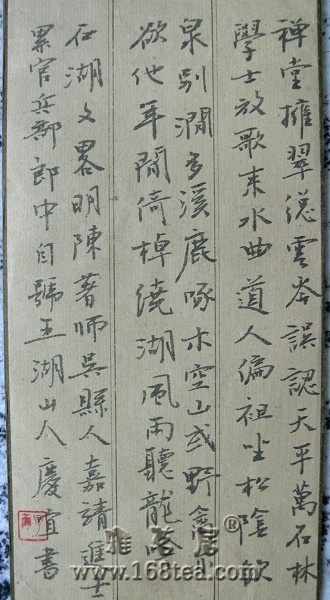 禅堂擁翠總雲岑誤認天平萬石林
學士放歌来水曲道人偏袒坐松陰飲
泉別澗多溪鹿啄木空山或野禽
欲他年閒倚棹繞湖風雨聽龍吟
石湖文畧明陳著師吳縣人嘉靖進士
累官兵部郎中自號五湖山人 慶宜書
®
www.168tea.com